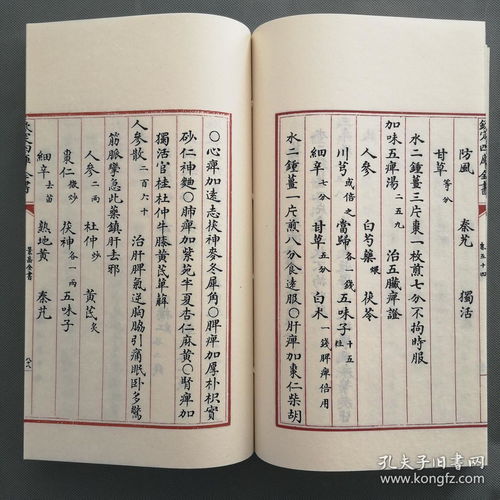 欽定四庫全書
卷五十四
防風 秦艽 獨活
甘草 等分
水二鍾薑三片棗一枚煎七分不拘時服
加味五痺湯 二五九 治五臟痺證
人參 白芍藥 煨 茯苓
川芎 或倍之 當歸 各一錢 五味子 十五粒
細辛 七分 甘草 五分 白朮 一錢脾痺倍用
水二鍾薑一片煎八分食遠服〇肝痺加棗仁柴胡
〇心痺加遠志茯神麥冬犀角〇脾痺加厚朴枳實
砂仁神麯〇肺痺加紫菀半夏杏仁麻黃〇腎痺加
獨活官桂杜仲牛膝黃芪萆薢
人參散 二百六十 治肝脾氣逆胸脇引痛眠卧多驚
筋脈攣急此藥鎮肝去邪
人參 二兩 杜仲 炒 黃芪 炙
棗仁 微炒 茯神 各一兩 五味子
細辛 去苗 熟地黃 秦艽
欽定四庫全書
景岳全書
孔夫子旧书网
www.kongfz.com